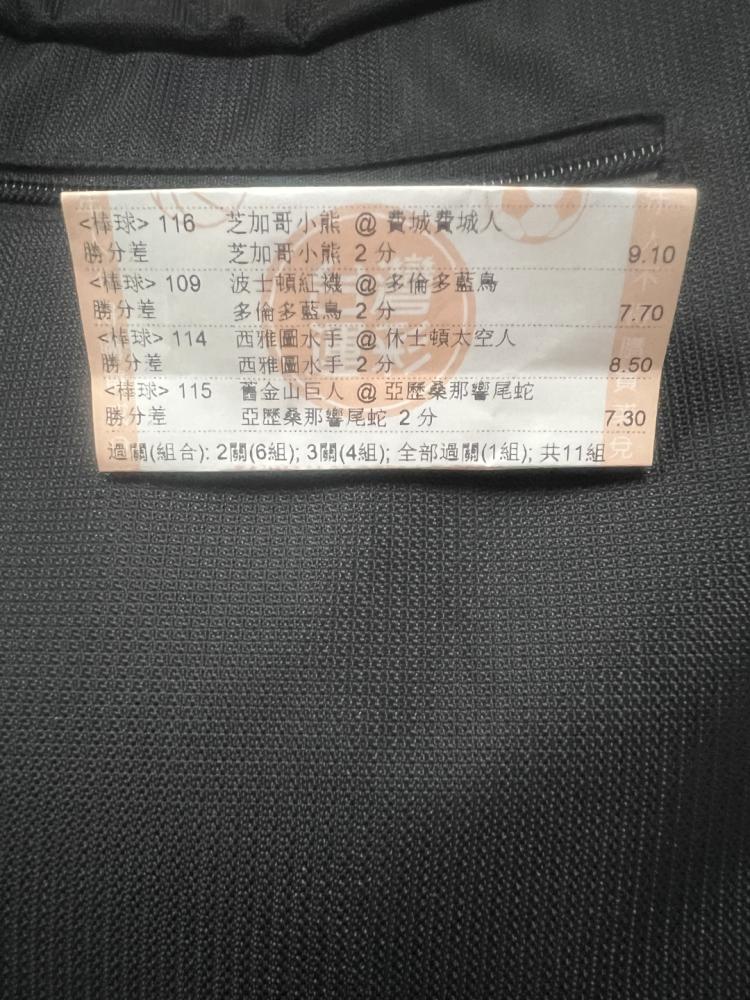 <棒球> 116 芝加哥小熊 @ 費城費城人
勝分差 芝加哥小熊 2 分 9.10
<棒球> 109 波士頓紅襪 @ 多倫多藍鳥
勝分差 多倫多藍鳥 2 分 7.70
<棒球> 114 西雅圖水手 @ 休士頓太空人
勝分差 西雅圖水手 2 分 8.50
<棒球> 115 舊金山巨人 @ 亞歷桑那響尾蛇
勝分差 亞歷桑那響尾蛇 2 分 7.30
過關(組合): 2關(6組); 3關(4組); 全部過關(1組); 共11組